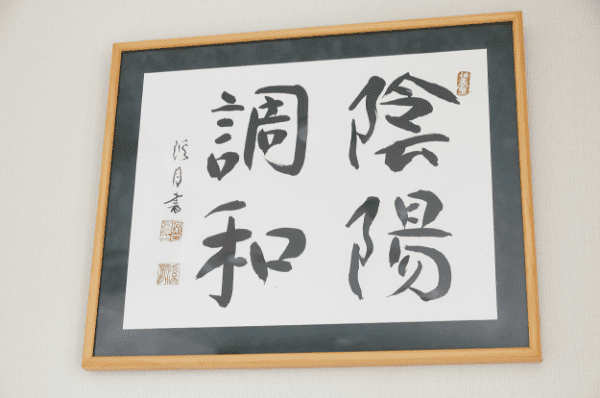 陰陽
調和
月書